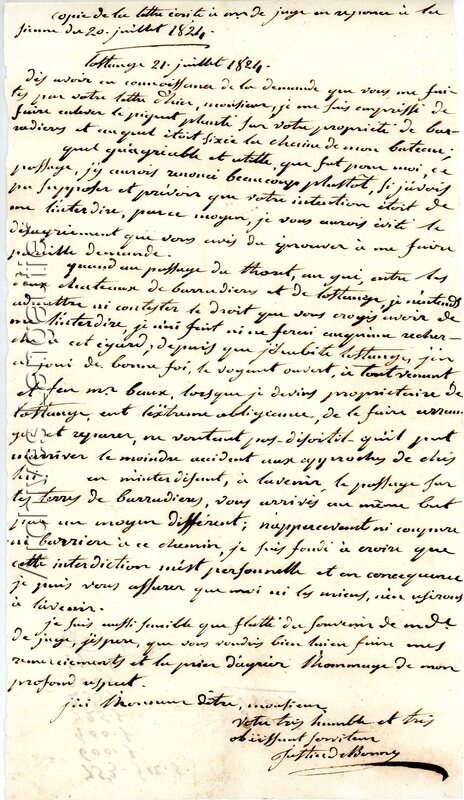 copie de la lettre écrite à mr de juge en reponce à la
sienne du 20. juillet 1824.
lostange 21. juillet 1824.
dès avoir eu connoissance de la demande que vous me fai-
tes par votre lettre d'hier, monsieur, je me suis empressé de
faire enlever le piquet planté sur votre propriété de bar-
radiers et auquel étoit fixée la chaine de mon bateau;
quelqu'agréable et utille, que fut pour moi, ce
passage, j'y aurois renoncé beaucoup plustot, si j'avois
pu supposer et prévoir que votre intention étoit de
me l'interdire, parce moyen, je vous aurois évité le
désagrément que vous avés du éprouver à me faire
pareille demande.
quand au passage du thoret, au gui, entre les
deux chateaux de barradiers et de lostange, je n'entends
admettre ni contester le droit que vous croyés avoir de
me l'interdire, je n'ai fait ni ne ferai aucqu'une recher-
che à cet égard; depuis que j'habite lostange, j'en
ai joui de bonne foi, le voyant ouvert, à tout venant
et feu mr beaux, lorsque je devins proprietaire de
lostange, eut l'extrême obligeance, de le faire arran-
ger et reparer, ne voulant pas disoit-il qu'il put
m'arriver le moindre accident aux approches de chés
lui; en m'interdisant, à l'avenir, le passage sur
les terres de barradiers, vous arrivés au même but
par un moyen différent; n'appercevant ni coupure
ni barriere à ce chemin, je suis fondé à croire que
cette interdiction m'est personnelle et en concequence
je puis vous assurer que moi ni les miens, n'en userons
à l'avenir.
je suis aussi sensible que flatté du souvenir de mde.
de juge, j'espere, que vous voudrés bien lui en faire mes
remerciements et la prier d'agréer l'hommage de mon
profond respect.
j'ai l'honneur d'être, monsieur
votre très humble et très
obéissant serviteur